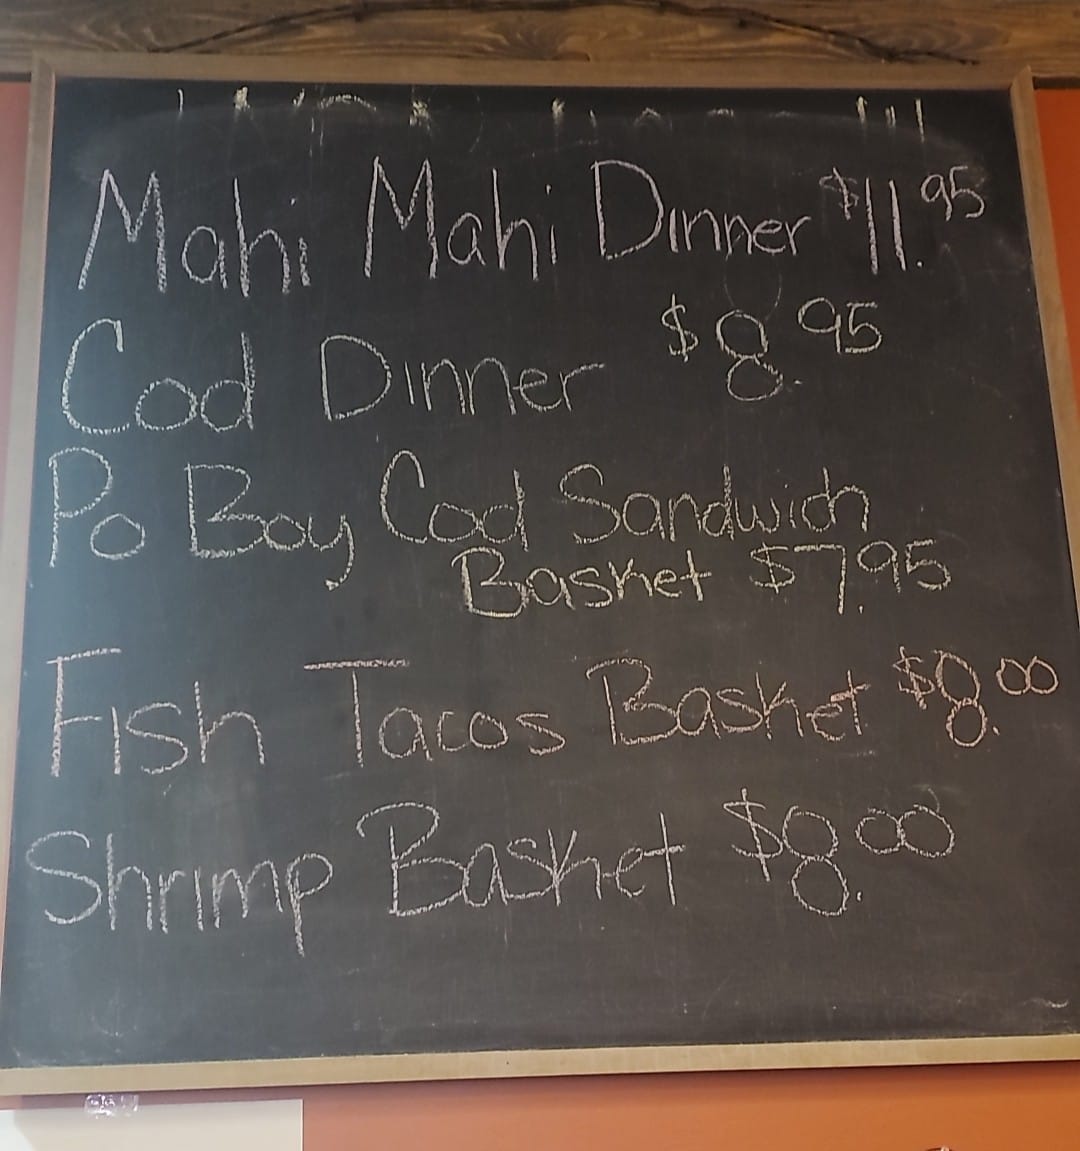 Mahi Mahi Dinner $11.95
Cod Dinner $8.95
Po Boy Cod Sandwich
Basket $7.95
Fish Tacos Basket $8.00
Shrimp Basket $8.00